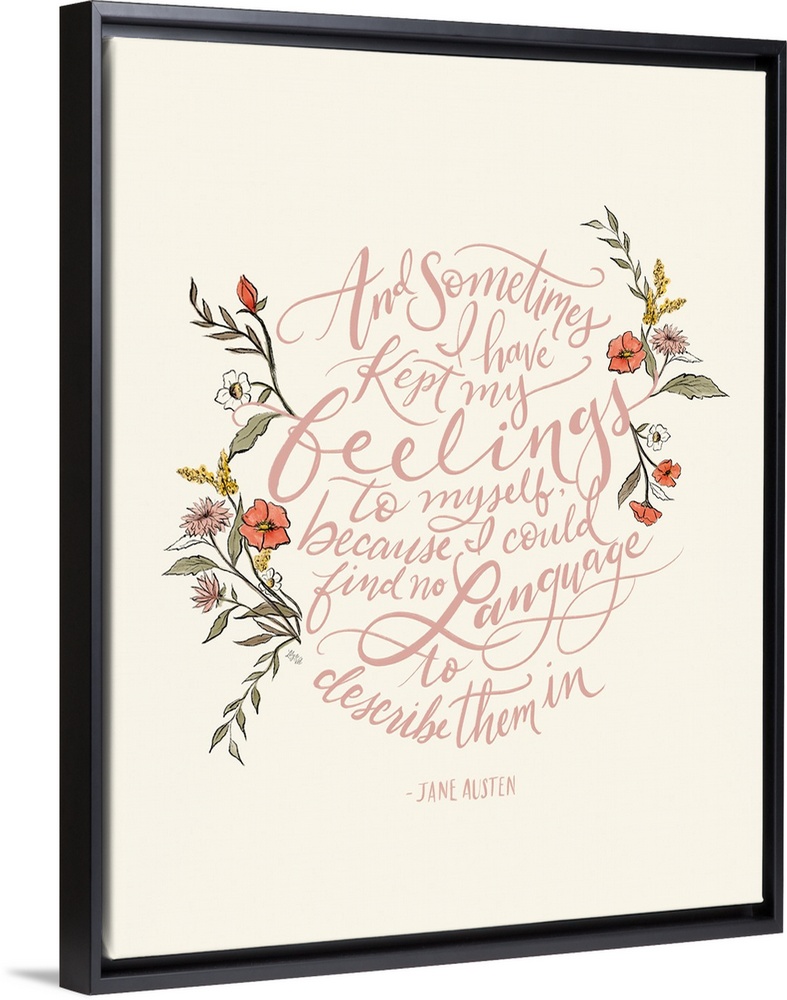 And Sometimes
I have
Kept my
feelings
to myself,
because I could
find no
Language
to
describe them in
- JANE AUSTEN